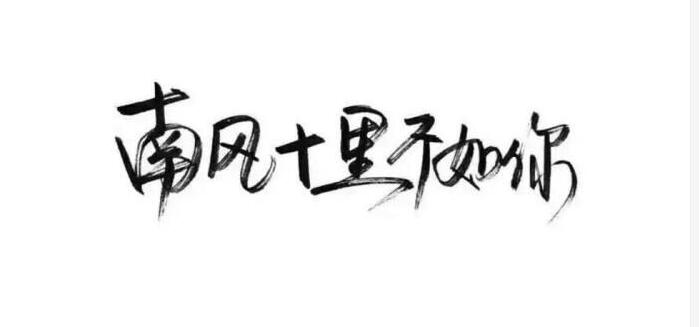 南风十里不如你